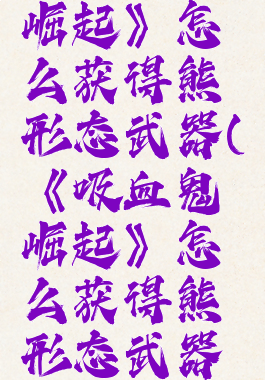 崛起》怎
么获得熊
形态武器(
《吸血鬼
崛起》怎
么获得熊
形态武器